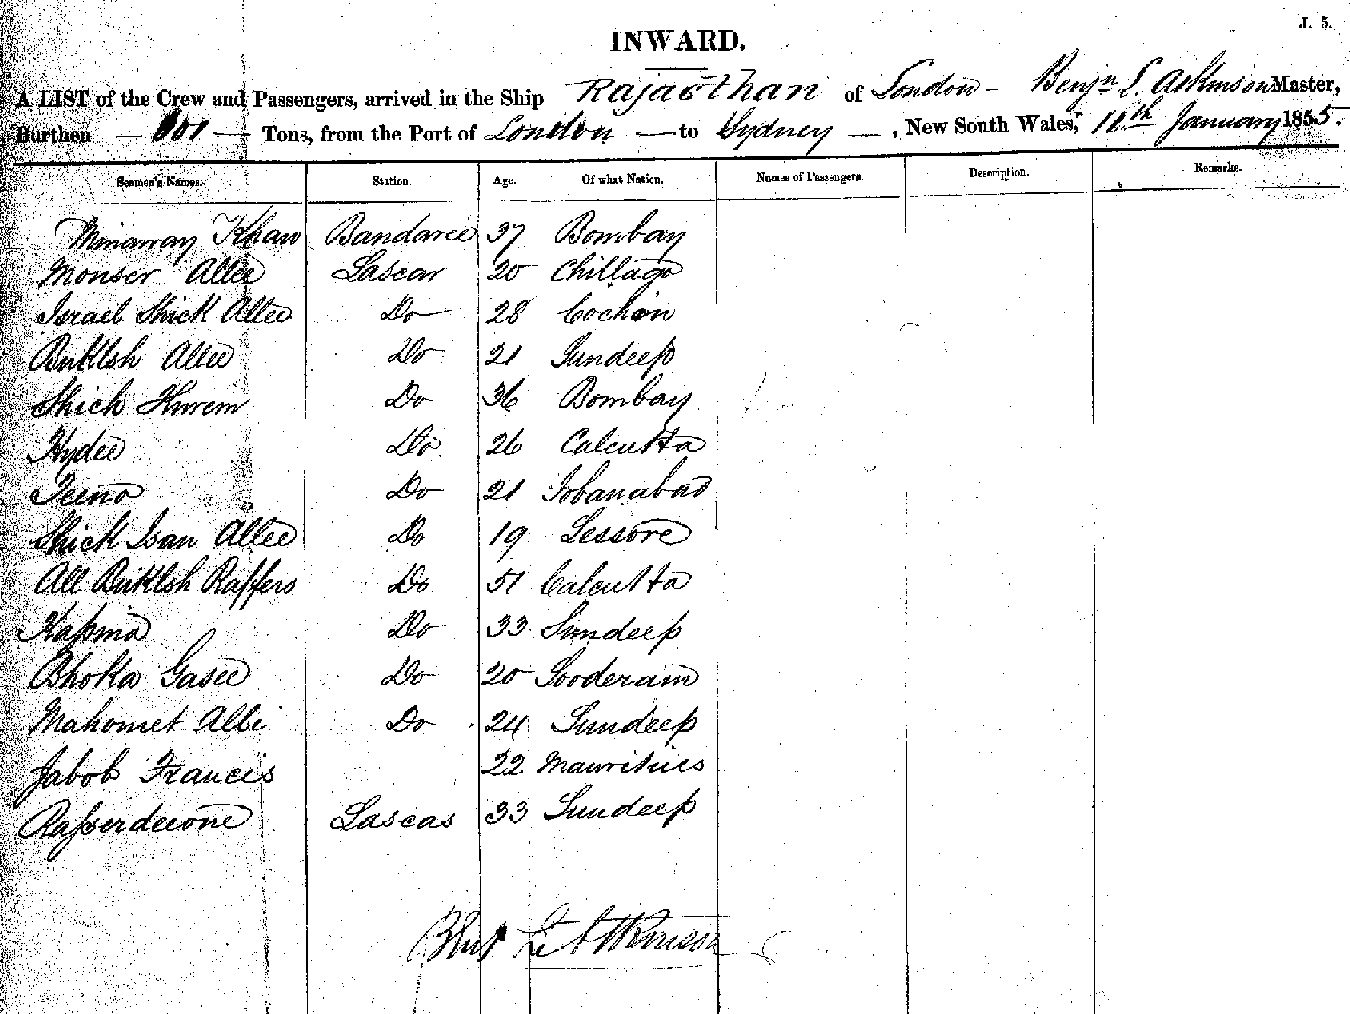 J. 5.
INWARD.
A LIST of the Crew and Passengers, arrived in the Ship Rajasthan of London - Benjn L. Atkinson Master,
Burthen Tons, from the Port of London to Sydney, New South Wales, 11th January 1855.
Seamen's Names. Station. Age. Of what Nation. Names of Passengers. Description. Remarks.
Khan Bandaree 37 Bombay
Monser Allee Lascar 20 Chillago
Israel Shick Allee Do 28 Cochin
Buktsh Allee Do 21 Sundeep
Shick Hurem Do 36 Bombay
Hydee Do 26 Calcutta
Do 21
Shick Isan Allee Do 19 Jessore
All Buktsh Raffers Do 51 Calcutta
Do 33 Sundeep
Bhoka Gasee Do 20 Sooderam
Mahomet Alli Do 24 Sundeep
Jabob Francis 22 Mauritius
Lascas 33 Sundeep
Atkinson